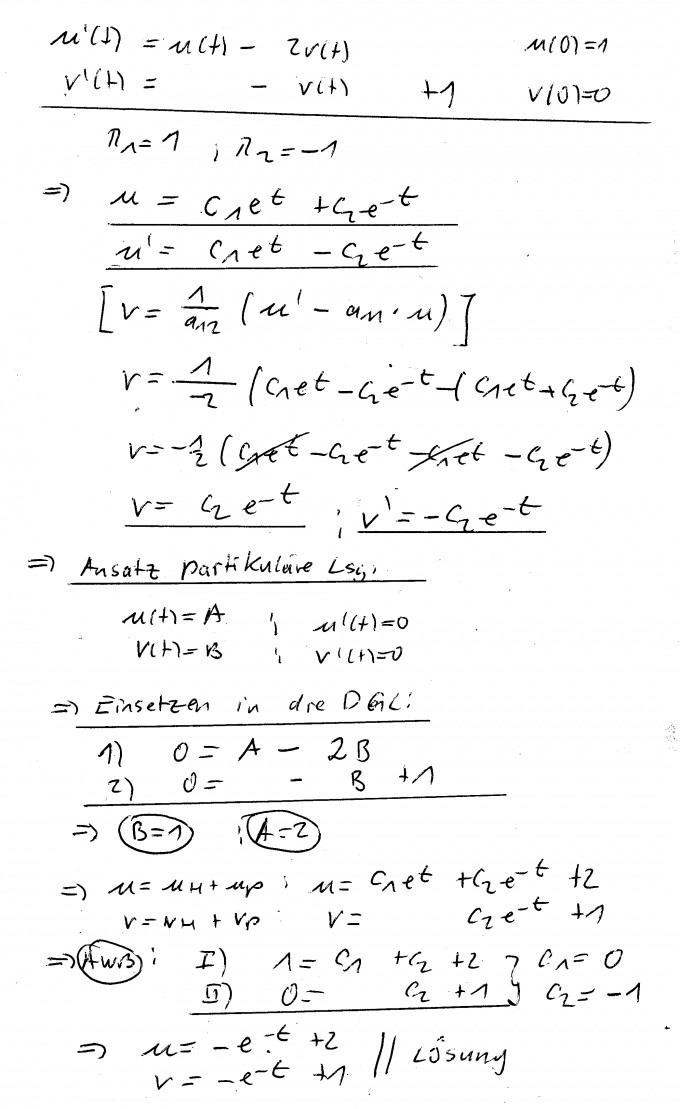 u'(t) = u(t) - 2v(t) u(0)=1
v'(t) = - v(t) +1 v(0)=0
λ₁=1 ; λ₂=-1
⇒ u = C₁e^t + C₂e^-t
u' = C₁e^t - C₂e^-t
[v = 1/a₁₂ (u' - a₁₁·u)]
v = 1/-2 (C₁e^t - C₂e^-t - (C₁e^t + C₂e^-t)
v = -1/2 (C₁e^t - C₂e^-t - C₁e^t - C₂e^-t)
v = C₂e^-t ; v' = -C₂e^-t
⇒ Ansatz partikuläre Lsg.
u(t)=A ; u'(t)=0
v(t)=B ; v'(t)=0
⇒ Einsetzen in die DGL:
1) 0 = A - 2B
2) 0 = - B +1
⇒ B=1 ; A=2
⇒ u = u_H + u_p ; u = C₁e^t + C₂e^-t +2
v = v_H + v_p : v = C₂e^-t +1
⇒ AWB : I) 1 = C₁ + C₂ +2 } C₁=0
II) 0 = C₂ +1 } C₂=-1
⇒ u = -e^-t +2 // Lösung
v = -e^-t +1